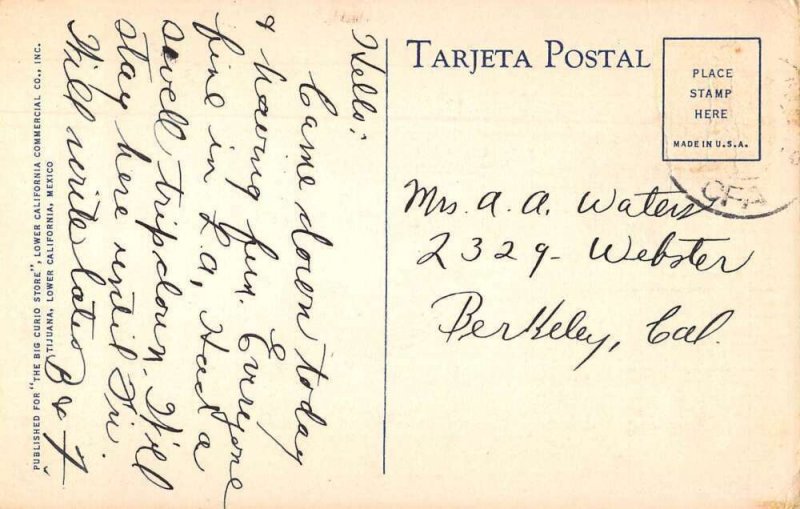 TARJETA POSTAL
PLACE
STAMP
HERE
MADE IN U.S.A.
Mrs. A. A. Waters
2329 - Webster
Berkeley, Cal.
Hello:
Came down today
& having fun. Everyone
fine in L.A. Had a
swell trip down. Will
stay here until Fri.
Will write later
B & F
PUBLISHED FOR "THE BIG CURIO STORE", LOWER CALIFORNIA COMMERCIAL CO., INC.
TIJUANA, LOWER CALIFORNIA, MEXICO